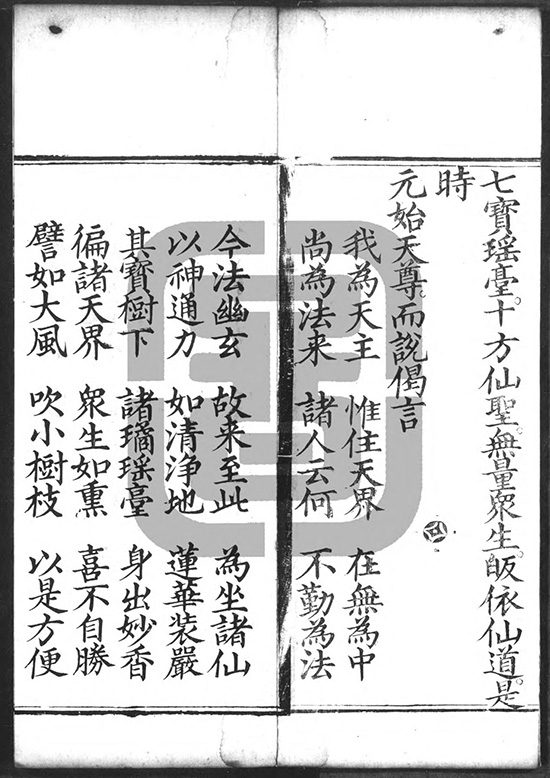 七寶瑶臺。十方仙聖。無量衆生。皈依仙道。是
時
元始天尊。而說偈言
我為天主　惟住天界　在無為中
尚為法来　諸人云何　不勤為法
今法幽玄　故来至此　為坐諸仙
以神通力　如清淨地　蓮華装嚴
其寶樹下　諸璚瑶臺　身出妙香
徧諸天界　衆生如熏　喜不自勝
譬如大風　吹小樹枝　以是方便